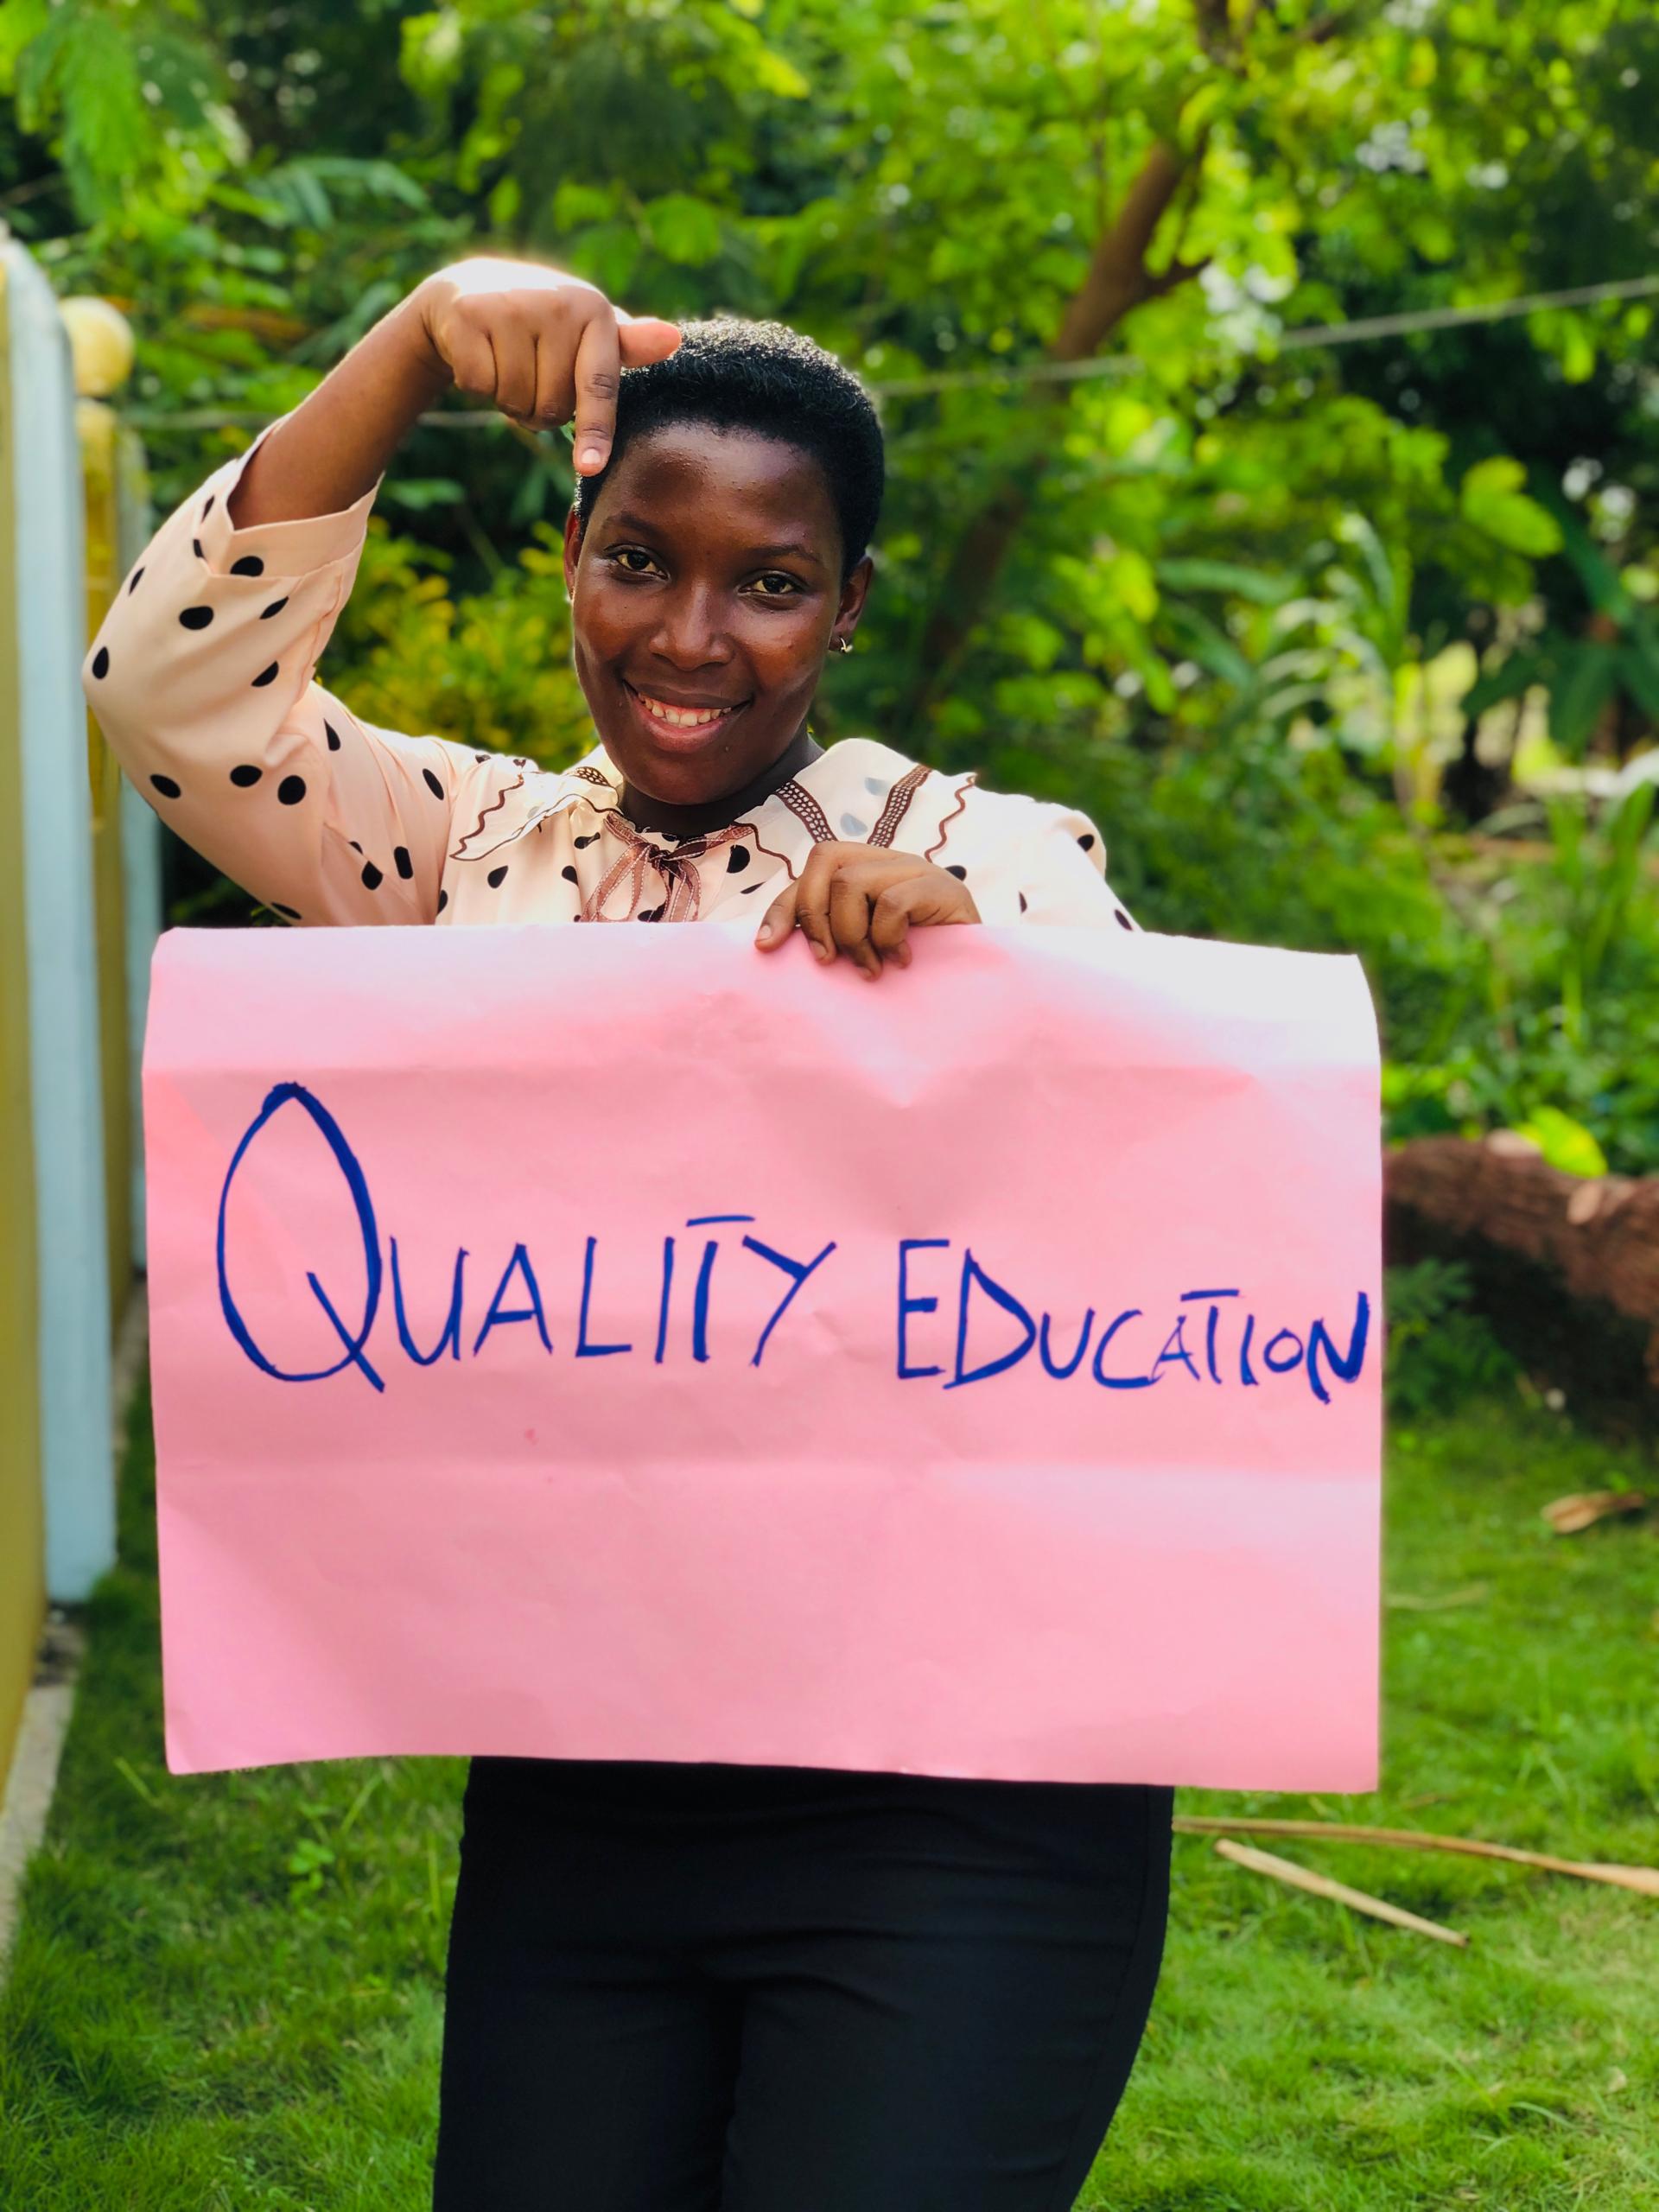 QUALITY EDUCATION